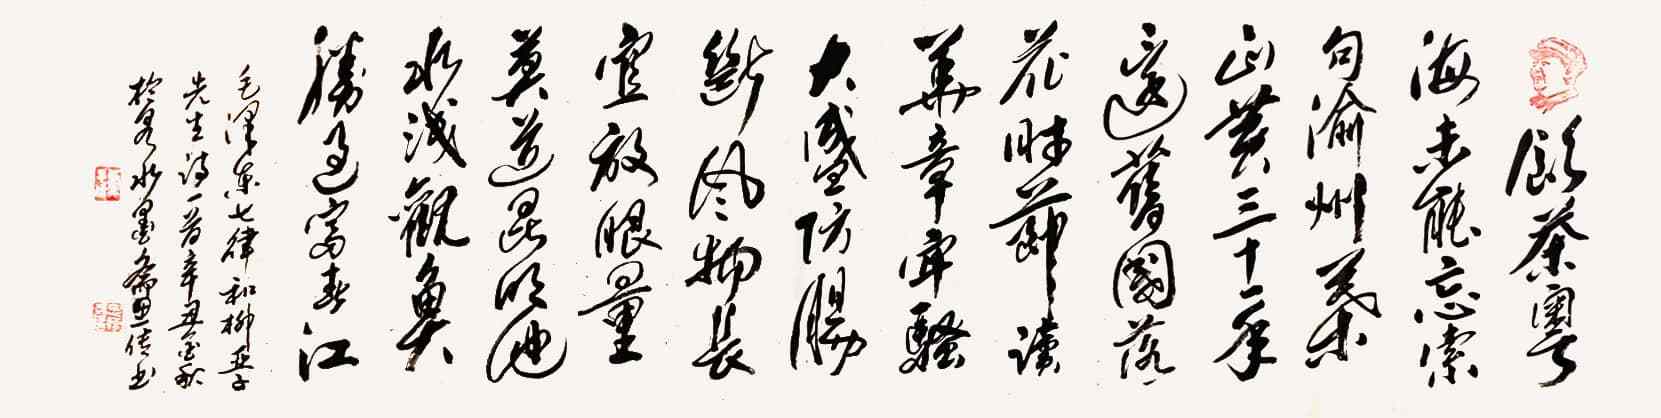 飲茶粵
海未能忘索
句渝州葉
正黃三十一年
還舊國落
花時節讀
華章牢騷
太盛防腸
斷风物長
宜放眼量
莫道昆明池
水淺觀魚
勝過富春江
毛澤東七律和柳亞子
先生詩一首辛丑金秋
於泉水墨齋思传书